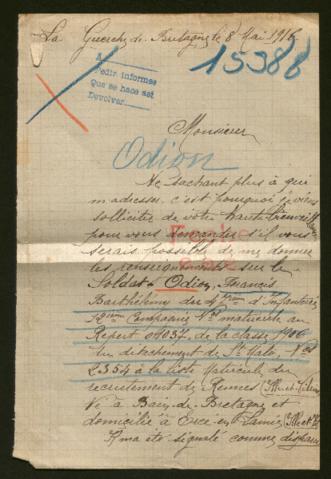 La Guerche de Bretagne le 8 Mai 1916
15388
A
Pedir informes
Que se hace así
Devolver
Monsieur
Odion
Ne sachant plus à qui
m'adresser c'est pourquoi je viens
solliciter de votre haute bienveillance
pour vous demander s'il vous
serais possible de me donner
des renseignements sur le
Soldat Odion, Francis
Barthélémy du 47ème d'Infanterie
Compagnie No matricule au
Repert 04037 de la classe 1906
du détachement de St Malo, No
2354 à la liste matricule du
recrutement de Rennes (Ille-et-Vilaine
Né à Bain-de-Bretagne et
domicilié à Ercé-en-Lamée (Ille et V
Il m'a été signalé comme disparu